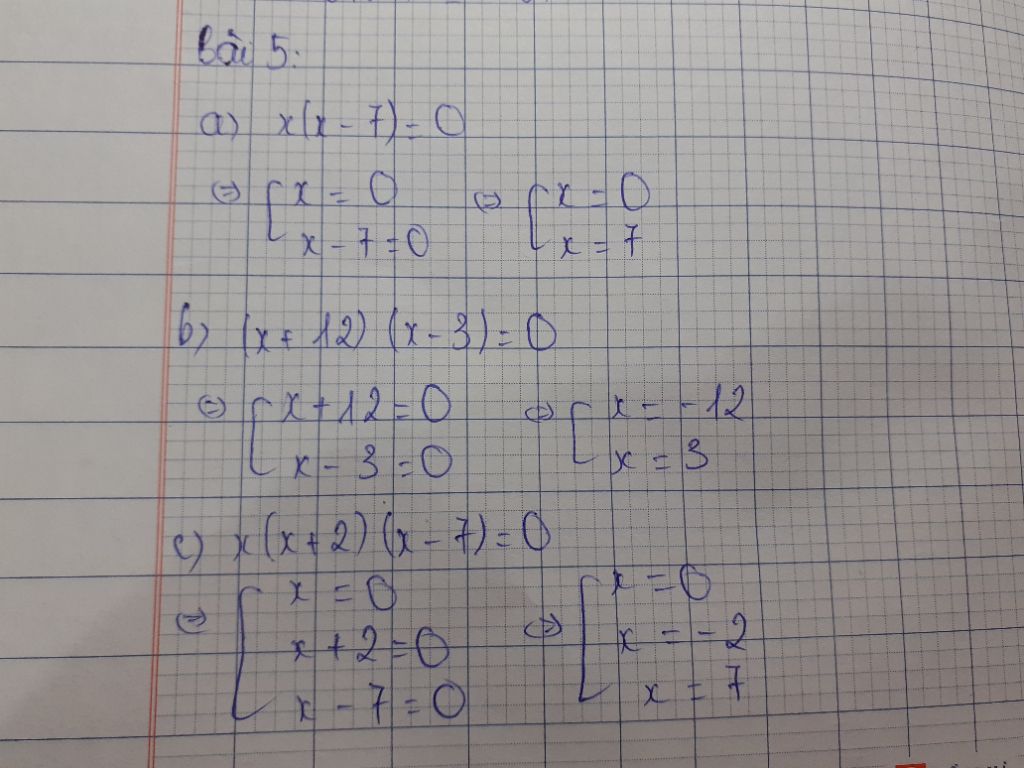 Bài 5:
a) x(x - 7) = 0
⇔ [ x = 0 ⇔ [ x = 0
x - 7 = 0 x = 7
b) (x + 12) (x - 3) = 0
⇔ [ x + 12 = 0 ⇔ [ x = -12
x - 3 = 0 x = 3
c) x(x + 2) (x - 7) = 0
⇔ [ x = 0 ⇔ [ x = 0
x + 2 = 0 x = -2
x - 7 = 0 x = 7